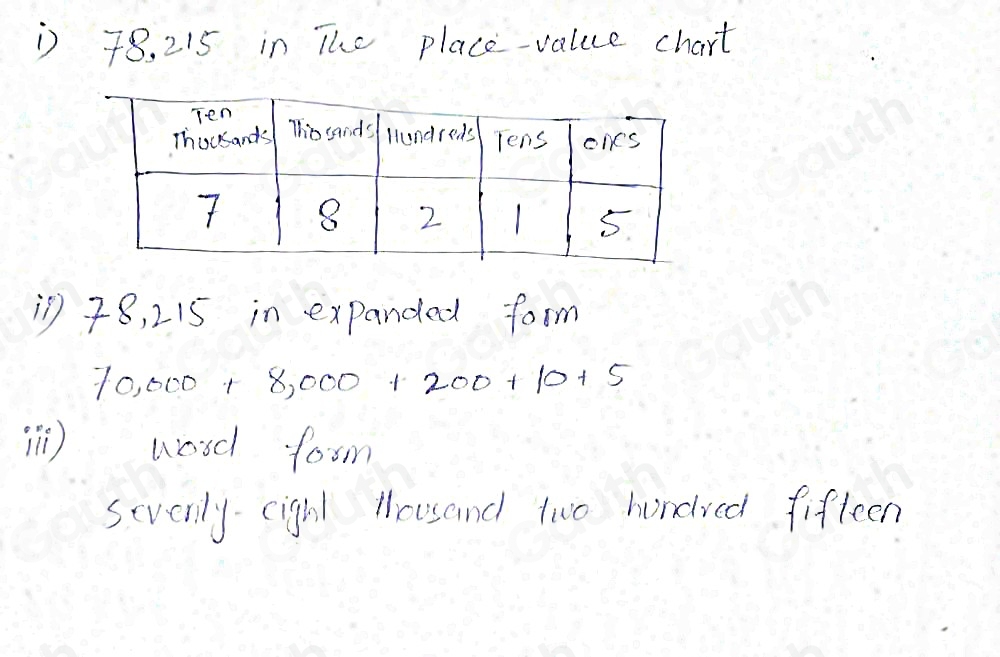 i) 78,215 in The place-value chart
Ten Thousands Thousands Hundreds Tens ones
7 8 2 1 5
ii) 78,215 in expanded form
70,000 + 8,000 + 200 + 10 + 5
iii) word form
seventy-eight thousand two hundred fifteen